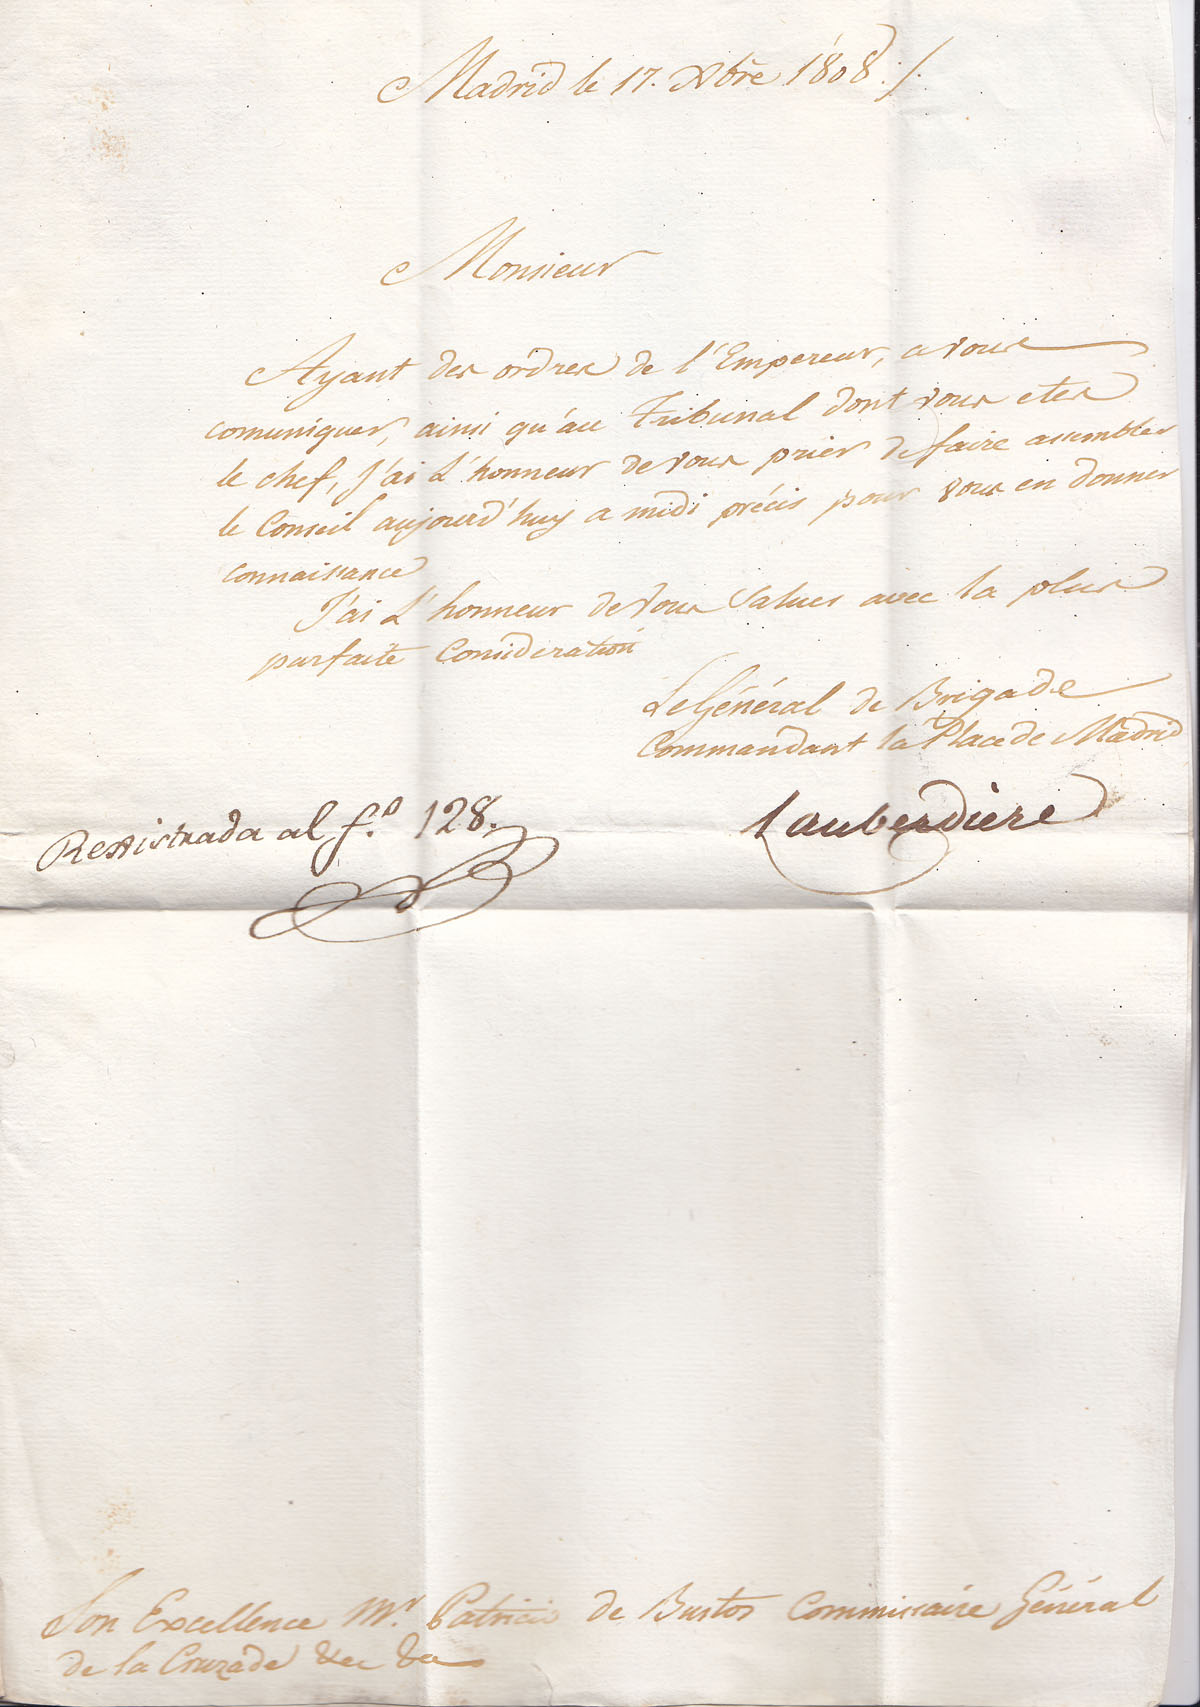 Madrid le 17. Xbre 1808 ./.
Monsieur
Ayant des ordres de l'Empereur, a vous
comuniquer, ainsi qu'au Tribunal dont vous etes
le chef, J'ai L'honneur de vous prier de faire assembler
le Conseil aujourd'huy a midi précis pour vous en donner
connaissance
J'ai L'honneur de vous Saluer avec la plus
parfaite Consideration
Le Général de Brigade
Commandant la Place de Madrid
Lauberdière
Rexistrada al f.º 128.
Son Excellence Mr. Patricio de Bustos Commissaire Général
de la Cruzade &ec &a